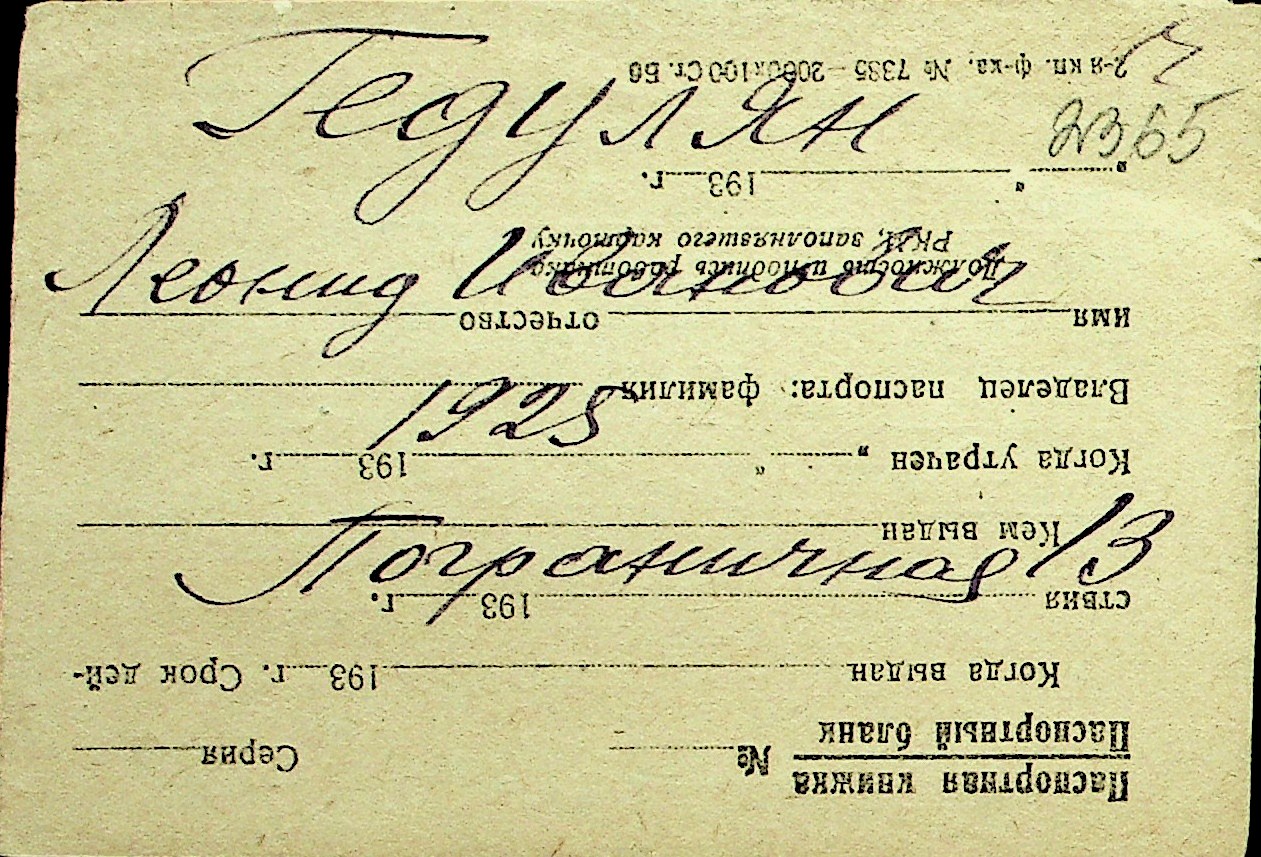 Гедулян
2365
Леонид Иванович
1925
Пограничная 13
Паспортная книжка
Паспортный бланк
№ Серия
Когда выдан 193 г. Срок дей-
ствия 193 г.
Кем выдан
Когда утрачен „ “ 193 г.
Владелец паспорта: фамилия
имя отчество
Должность и подпись работника
РКМ, заполнявшего карточку
„ “ 193 г.
2-я кп. ф-ка. № 7385—2000х100 Ст. Бб